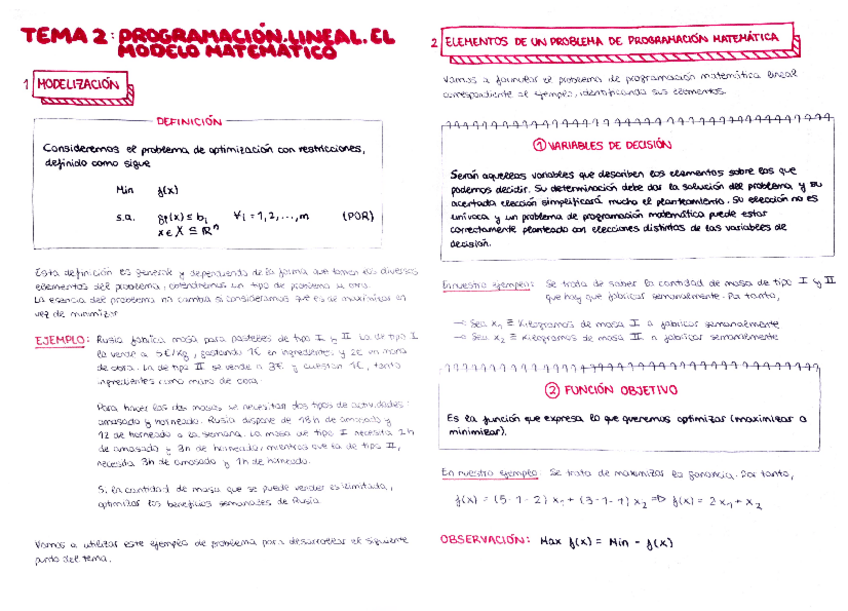 TEMA 2: PROGRAMACIÓN.LINEAL.EL
MODELO MATEMÁTICO
1 MODELIZACIÓN
DEFINICIÓN
Consideremos el problema de optimización con restricciones,
definido como sigue
Min f(x)
s.a. gi(x) ≤ bi ∀i = 1, 2, ..., m (POR)
x ∈ X ⊆ ℝⁿ
Esta definición es general y dependiendo de la forma que tomen los diversos
elementos del problema, obtendremos un tipo de problema u otro.
La esencia del problema no cambia si consideramos que es de maximizar en
vez de minimizar
EJEMPLO: Rusia fabrica masa para pasteles de tipo I y II. La de tipo I
la vende a 5€/kg, gastando 1€ en ingredientes y 2€ en mano
de obra. La de tipo II se vende a 3€ y cuestan 1€, tanto
ingredientes como mano de obra.
Para hacer las dos masas se necesitan dos tipos de actividades:
amasado y horneado. Rusia dispone de 18h de amasado y
12 de horneado a la semana. La masa de tipo I necesita 2h
de amasado y 3h de horneado, mientras que la de tipo II,
necesita 3h de amasado y 1h de horneado.
Si la cantidad de masa que se puede vender es ilimitada,
optimizar los beneficios semanales de Rusia
Vamos a utilizar este ejemplo de problema para desarrollar el siguiente
punto del tema.
2 ELEMENTOS DE UN PROBLEMA DE PROGRAMACIÓN MATEMÁTICA
Vamos a formular el problema de programación matemática lineal
correspondiente al ejemplo, identificando sus elementos.
① VARIABLES DE DECISIÓN
Serán aquellas variables que describen los elementos sobre los que
podemos decidir. Su determinación debe dar la solución del problema y su
acertada elección simplificará mucho el planteamiento. Su elección no es
unívoca y un problema de programación matemática puede estar
correctamente planteado con elecciones distintas de las variables de
decisión.
En nuestro ejemplo: Se trata de saber la cantidad de masa de tipo I y II
que hay que fabricar semanalmente. Por tanto,
→ Sea x₁ ≡ Kilogramos de masa I a fabricar semanalmente
→ Sea x₂ ≡ Kilogramos de masa II a fabricar semanalmente
② FUNCIÓN OBJETIVO
Es la función que expresa lo que queremos optimizar (maximizar o
minimizar).
En nuestro ejemplo: Se trata de maximizar la ganancia. Por tanto,
f(x) = (5-1-2) x₁ + (3-1-1) x₂ ⇒ f(x) = 2x₁ + x₂
OBSERVACIÓN: Max f(x) = Min - f(x)